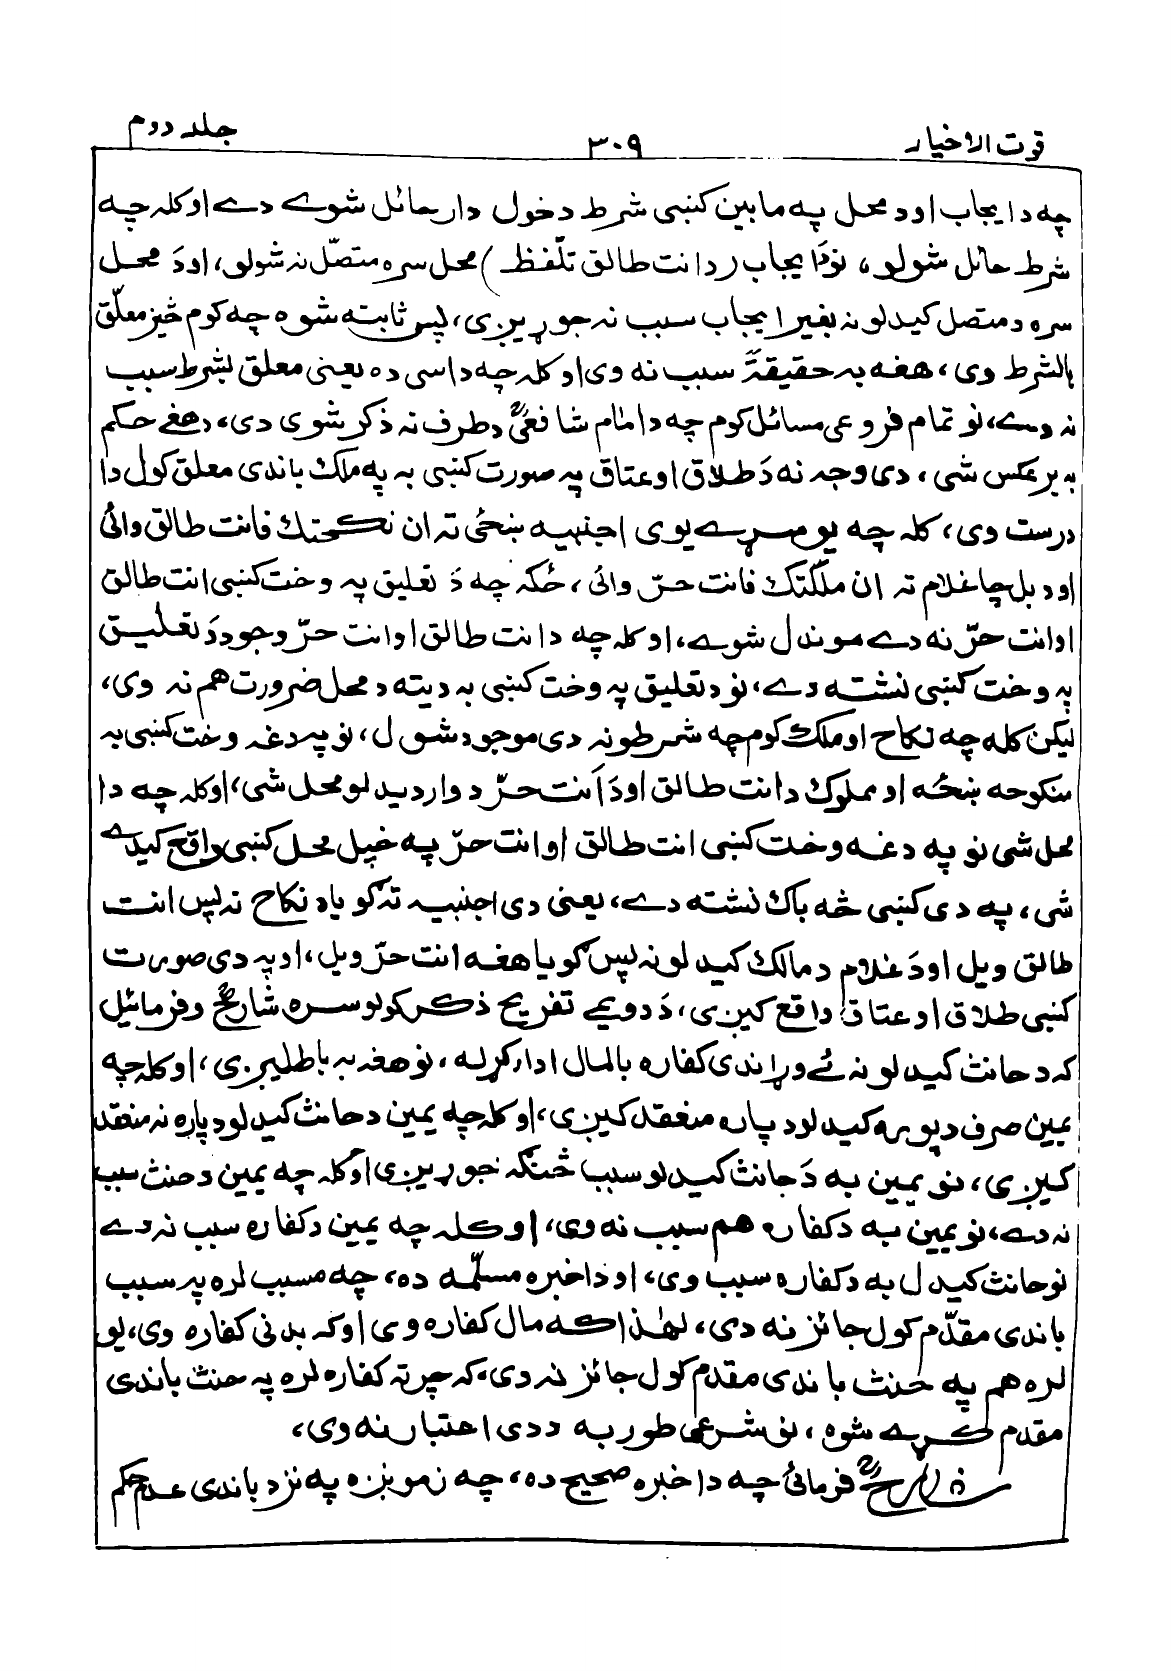 قوت الاخیار ۳۰۹ جلد دوم
چه دا یجاب اود محل په مابین کښی شرط دخول دار حائل شوے دے اوکله چه
شرط حائل شولو، نودَا یجاب (دانت طالق تلّفظ) محل سره متصّل نه شولو، اودَ محل
سره دمتصل کیدلو نه بغیر ایجاب سبب نه جوړیږی، پس ثابته شوه چه کوم څیز معلّق
بالشرط وی، هغه به حقیقةً سبب نه وی اوکله چه داسی ده یعنی معلق بشرط سبب
نه دے، نو تمام فروعی مسائل کوم چه دامام شافعیؒ دطرف نه ذکر شوی دی، دهغے حکم
به برعکس شی، دی وجه نه دَ طلاق اوعتاق په صورت کښی به په ملک باندی معلق کول دا
درست وی، کله چه یو سړے یوی اجنبیه ښځی ته ان نکحتك فانت طالق وائی
اود بل چا غلام ته ان ملکتك فانت حرّ وائی، ځکه چه دَ تعلیق په وخت کښی انت طالق
اوانت حرّ نه دے موندل شوے، اوکله چه دانت طالق اوانت حرّ وجود دَ تعلیق
په وخت کښی نشته دے، نو دتعلیق په وخت کښی به دیته دمحل ضرورت هم نه وی،
لیکن کله چه نکاح اوملك کوم چه شرطونه دی موجود شول، نو په دغه وخت کښی به
منکوحه ښځه او مملوك دانت طالق اودَ اَنت حرّ دواردیدلو محل شی، اوکله چه دا
محل شی نو په دغه وخت کښی انت طالق اوانت حرّ په خپل محل کښی واقع کیدے
شی، په دی کښی څه باك نشته دے، یعنی دی اجنبیه ته گویا د نکاح نه پس انت
طالق ویل اودَ غلام دمالك کیدلو نه پس گویا هغه انت حرّ ویل، اوپه دی صورت
کښی طلاق اوعتاق واقع کیږی، دَ دویمے تفریح ذکر کولو سره شارحؒ وفرمائیل
که دحانث کیدلو نه ئے وړاندی کفاره بالمال ادا کړله، نوهغه به باطلیږی، اوکله چه
یمین صرف دپوره کیدلو دپاره منعقد کیږی، اوکله چه یمین دحانث کیدلو دپاره نه منعقد
کیږی، نو یمین به دَ حانث کیدلو سبب څنگه جوړیږی اوکله چه یمین دحنث سبب
نه دے، نو یمین به دکفاره هم سبب نه وی، اوکله چه یمین دکفاره سبب نه دے
نو حانث کیدل به دکفاره سبب وی، اودا خبره مسلّمه ده، چه مسبب لره په سبب
باندی مقدّم کول جائز نه دی، لهٰذا که مال کفاره وی اوکه بدنی کفاره وی، یو
لره هم په حنث باندی مقدم کول جائز نه دی، که چرته کفاره لره په حنث باندی
مقدم کړے شوه، نو شرعی طور به ددی اعتبار نه وی،
شارحؒ فرمائی چه دا خبره صحیح ده، چه زمونږه په نزد باندی عدم حکم